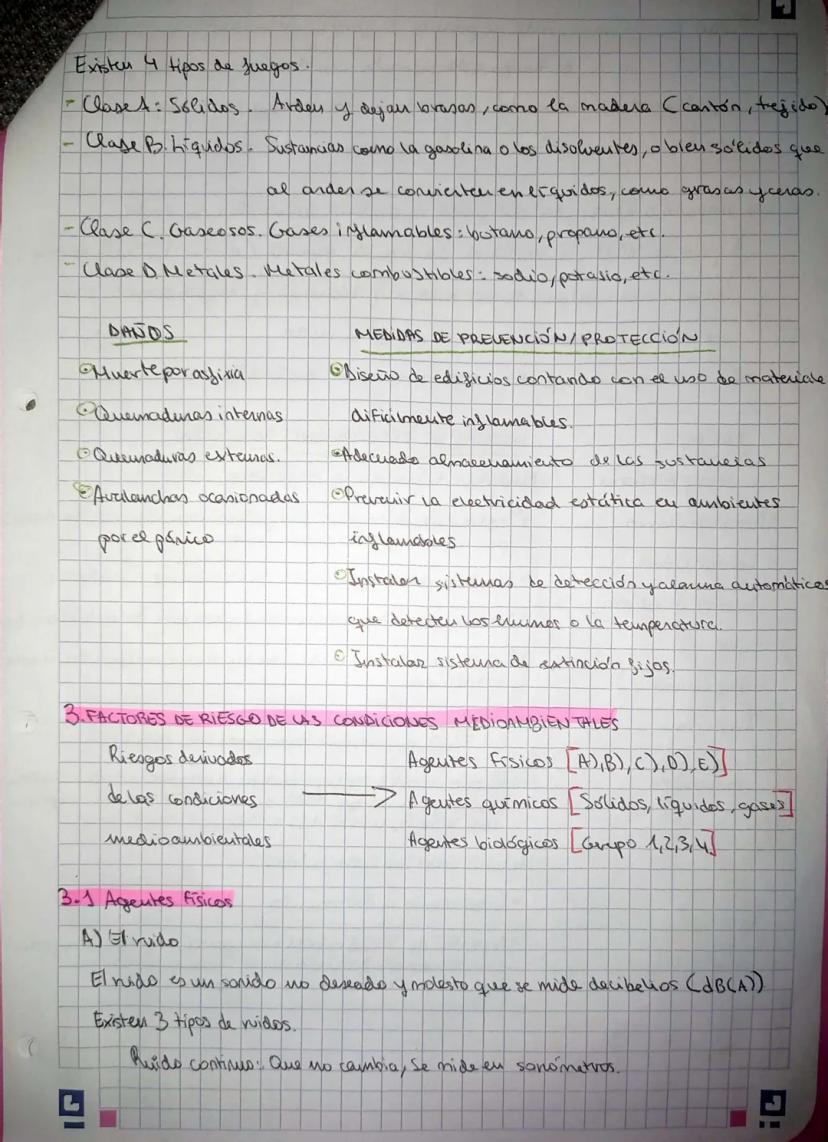 Existen 4 tipos de fuegos.
- Clase A: Sólidos. Arden y dejan brasas, como la madera (cartón, tejido)
- Clase B. Líquidos. Sustancias como la gasolina o los disolventes, o bien sólidos que
al arder se convierten en líquidos, como grasas y ceras.
- Clase C. Gaseosos. Gases inflamables: butano, propano, etc.
- Clase D. Metales. Metales combustibles: sodio, potasio, etc.
DAÑOS
Muerte por asfixia
Quemaduras internas
Quemaduras externas.
Avalanchas ocasionadas
por el pánico
MEDIDAS DE PREVENCIÓN/PROTECCIÓN
Diseño de edificios contando con el uso de materiale
dificilmente inflamables.
Adecuado almacenamiento de las sustancias
Prevenir la electricidad estática en ambientes
inflamables
Instalar sistemas de detección y alarma automáticos
que detecten los humos o la temperatura.
Instalar sistema de extinción fijos.
3. FACTORES DE RIESGO DE LAS CONDICIONES MEDIOAMBIENTALES
Riesgos derivados
de las condiciones
medioambientales
Agentes Físicos [A), B), C), D), E)]
Agentes químicos [Sólidos, líquidos, gases]
Agentes biológicos [Grupo 1,2,3,4]
3.1 Agentes Físicos
A) El ruido
El ruido es un sonido no deseado y molesto que se mide decibelios (dB(A))
Existen 3 tipos de ruidos.
Ruido continuo: Que no cambia, se mide en sonómetros.